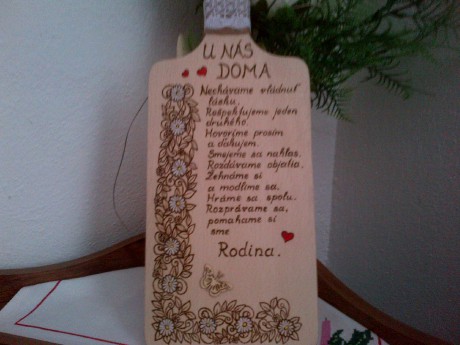 U NÁS
DOMA
Nechávame vládnuť
lásku.
Rešpektujeme jeden
druhého.
Hovoríme prosím
a ďakujem.
Smejeme sa nahlas.
Rozdávame objatia.
Žehnáme si
a modlíme sa,
Hráme sa spolu.
Rozprávame sa,
pomáhame si
sme
Rodina.